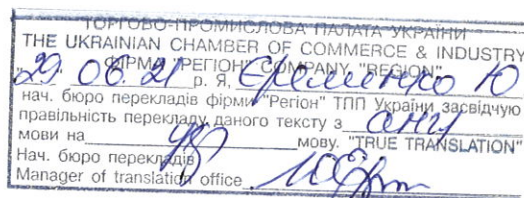 ТОРГОВО-ПРОМИСЛОВА ПАЛАТА УКРАЇНИ
THE UKRAINIAN CHAMBER OF COMMERCE & INDUSTRY
ФІРМА "РЕГІОН" COMPANY "REGION"
"29" 06. 21 р. Я, Єременко Ю
нач. бюро перекладів фірми "Регіон" ТПП України засвідчую
правільність перекладу даного тексту з англ
мови на укр мову. "TRUE TRANSLATION"
Нач. бюро перекладів
Manager of translation office